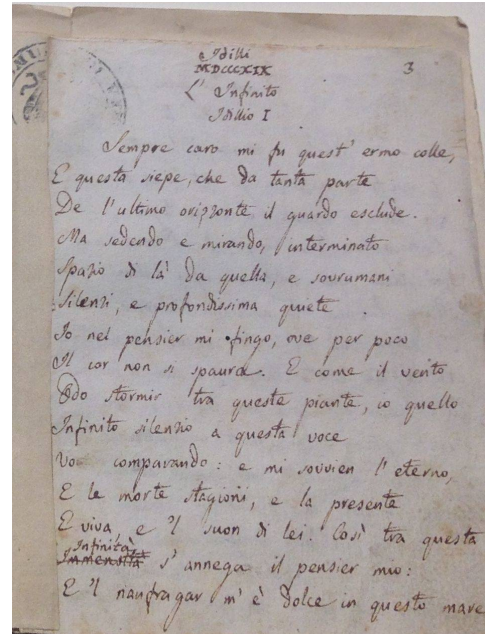 Idilli
MDCCCXIX
3
L' Infinito
Idillio I
Sempre caro mi fu quest' ermo colle,
E questa siepe, che da tanta parte
De l'ultimo orizzonte il guardo esclude.
Ma sedendo e mirando, interminato
Spazio di là da quella, e sovrumani
Silenzi, e profondissima quiete
Io nel pensier mi fingo, ove per poco
Il cor non si spaura. E come il vento
Odo stormir tra queste piante, io quello
Infinito silenzio a questa voce
Vo comparando: e mi sovvien l'eterno,
E le morte stagioni, e la presente
E viva, e 'l suon di lei. Così tra questa
Infinità
Immensità s'annega il pensier mio:
E 'l naufragar m'è dolce in questo mare